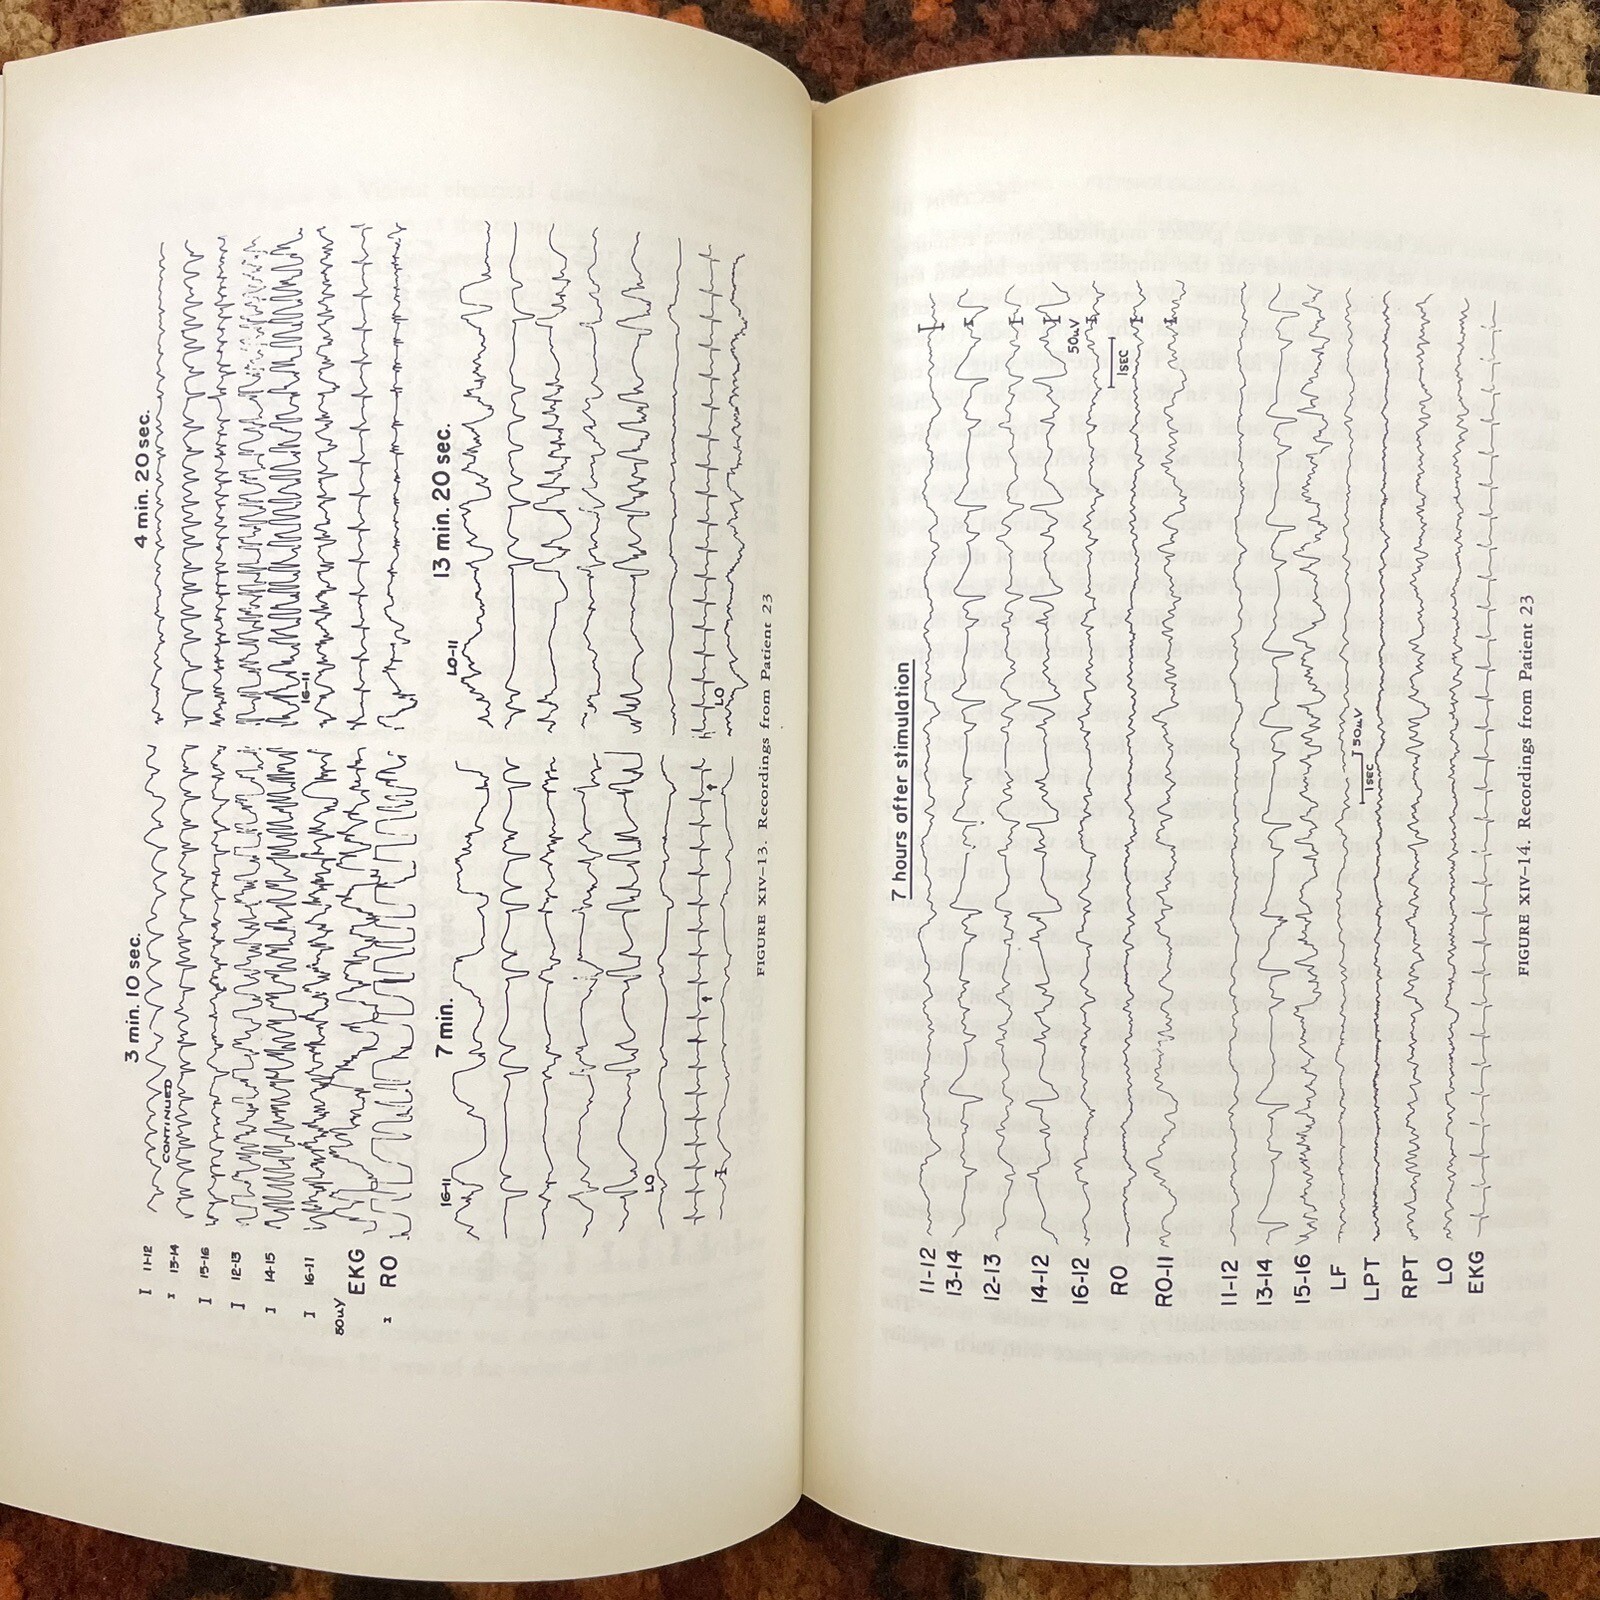 3 min. 10 sec.
4 min. 20 sec.
CONTINUED
11-12
13-14
15-16
12-13
14-15
16-11
16-11
50uV
EKG
RO
7 min.
13 min. 20 sec.
16-11
LO-11
LO
LO
FIGURE XIV-13. Recordings from Patient 23
7 hours after stimulation
11-12
13-14
12-13
14-12
16-12
RO
RO-11
50uV
1SEC
11-12
13-14
15-16
LF
LPT
RPT
LO
EKG
50uV
1SEC
FIGURE XIV-14. Recordings from Patient 23